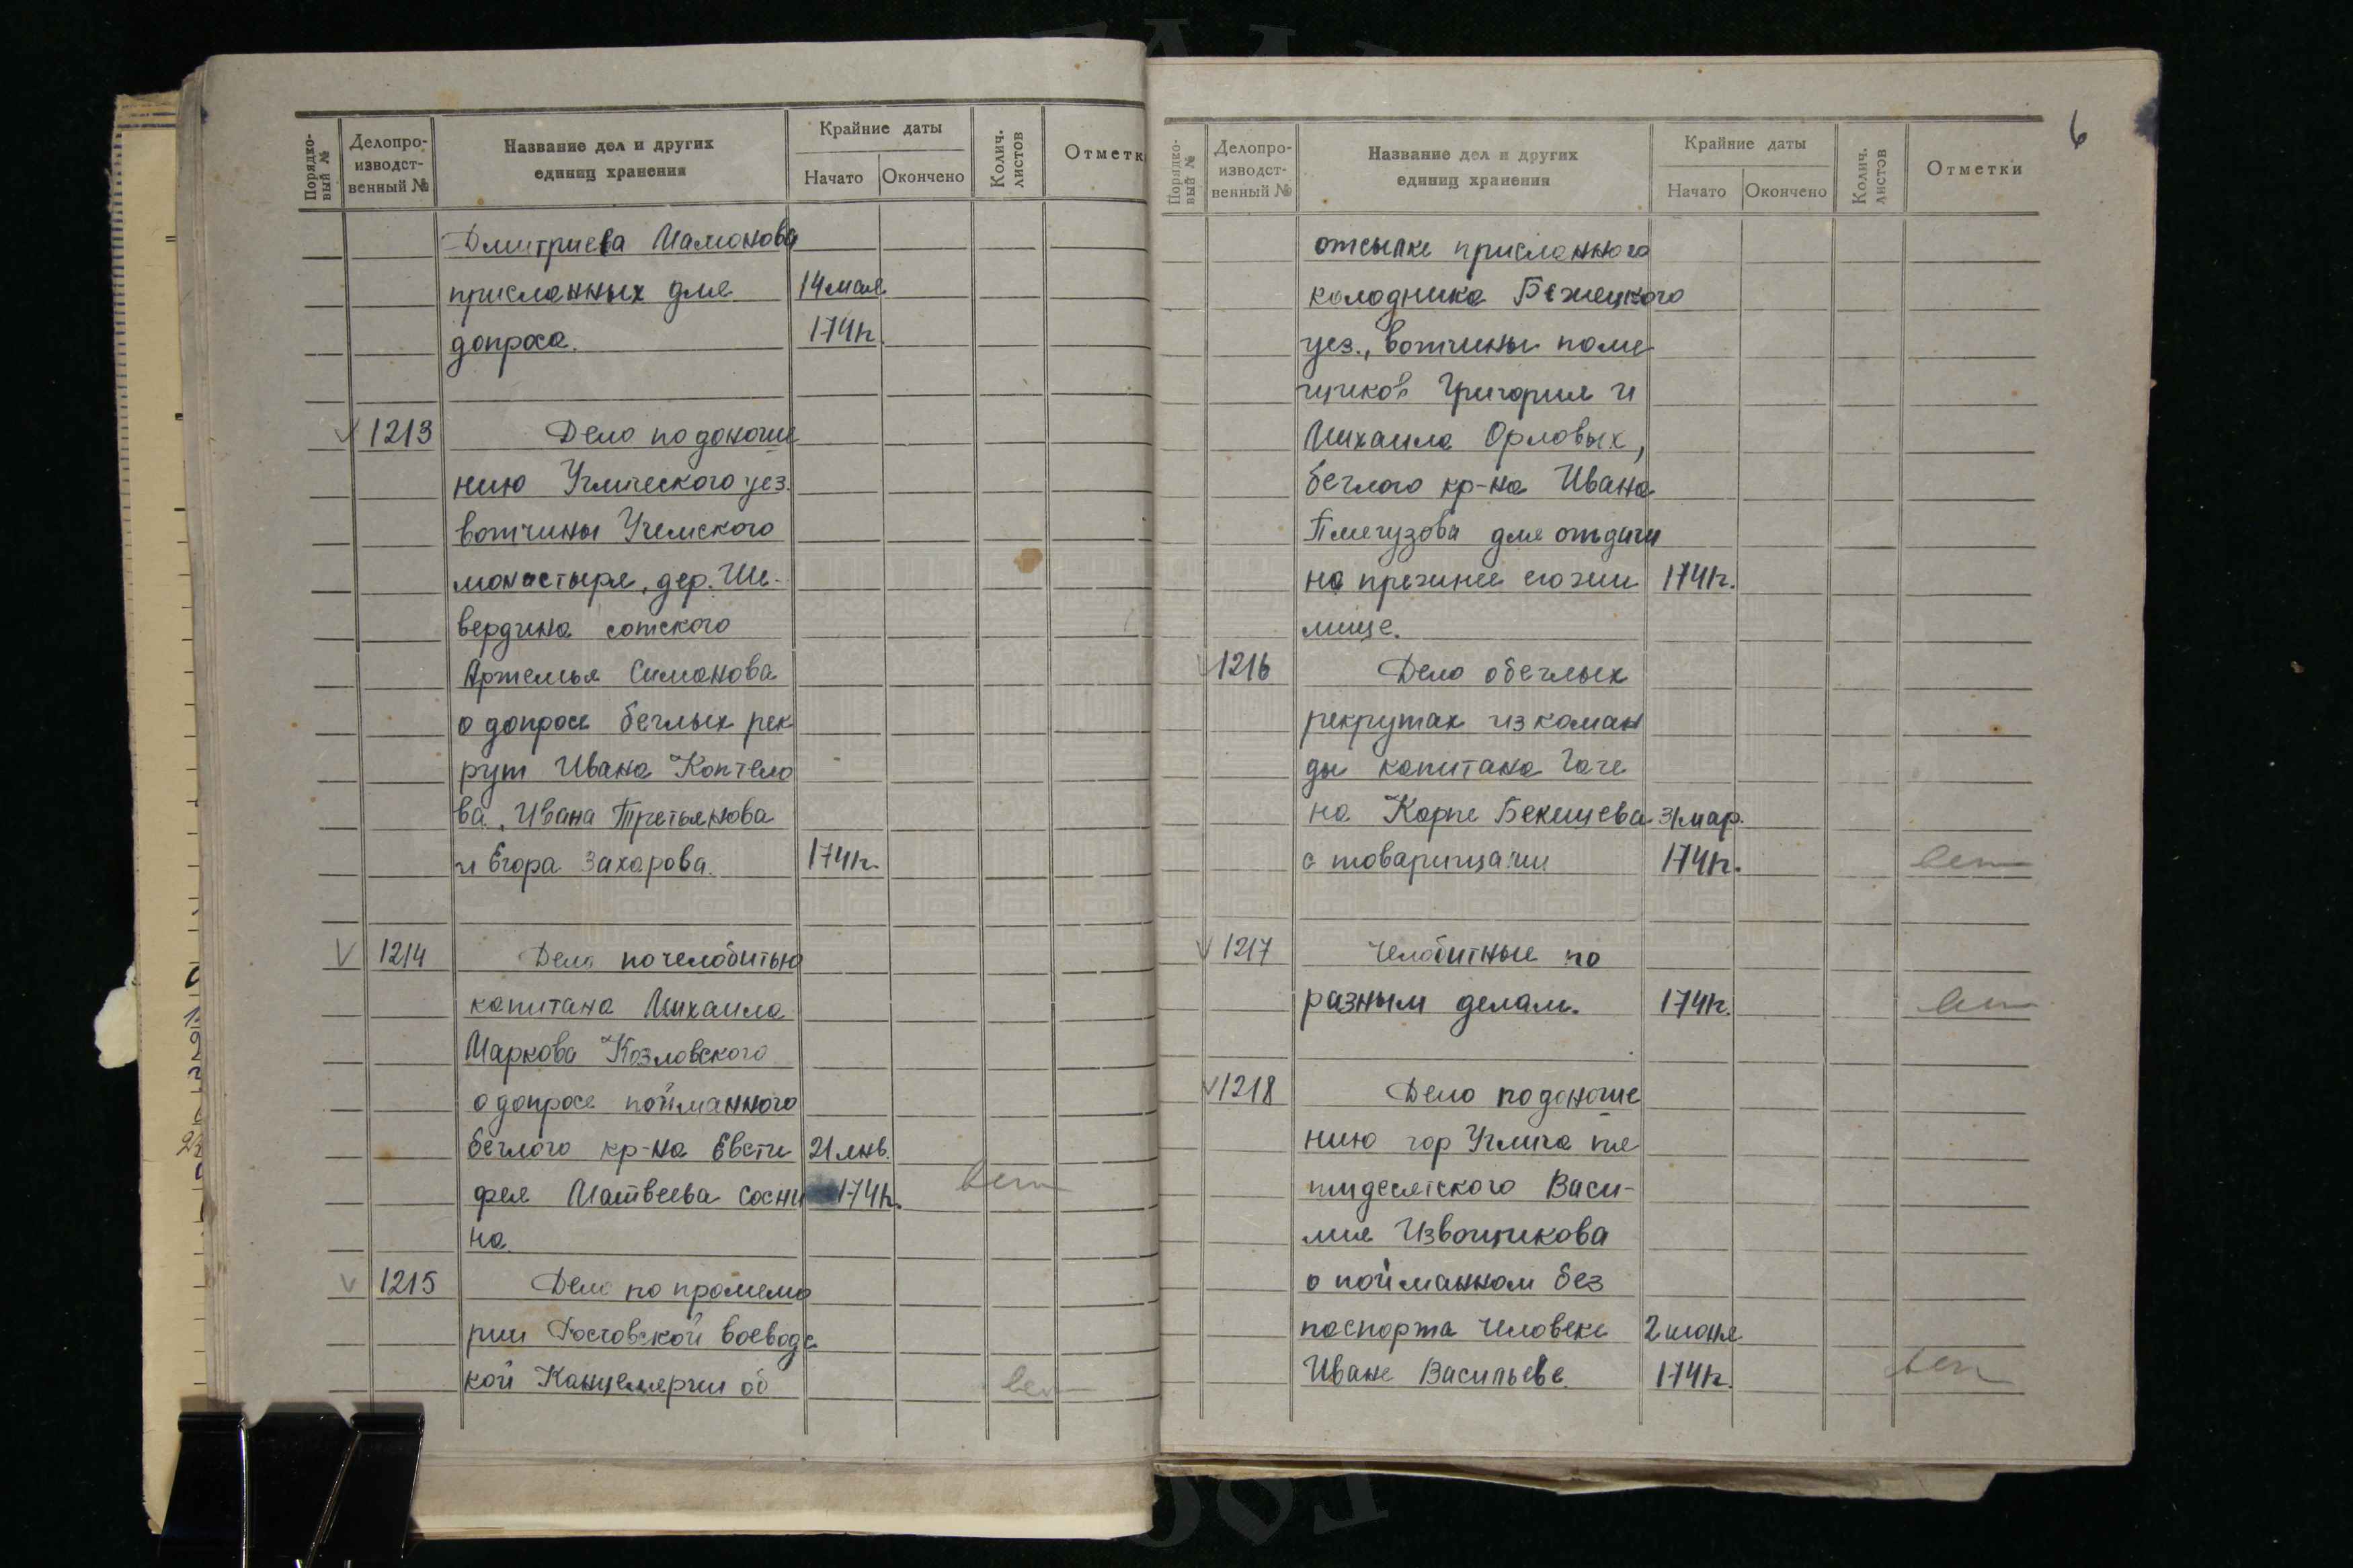 Порядко-
вый №
Делопро-
изводст-
венный №
Название дел и других
единиц хранения
Крайние даты
Начато
Окончено
Колич.
листов
Отметк
Дмитриева Мамонова
присланных для 14 мая
допроса. 1741г.
1213 Дело по доноше
нию Углического уез.
вотчины Учемского
монастыря, дер. Ше-
вердина сотского
Артемья Симонова
о допросе беглых рек
рут Ивана Коптело
ва, Ивана Третьякова
и Егора Захарова. 1741г.
V 1214 Дело по челобитью
капитана Михаила
Маркова Козловского
о допросе пойманного
беглого кр-на Евсти 21 янв.
фея Матвеева Сосни 1741г.
на
V 1215 Дело по промемо
рии Ростовской воеводс
кой Канцелярии об
6
Порядко-
вый №
Делопро-
изводст-
венный №
Название дел и других
единиц хранения
Крайние даты
Начато
Окончено
Колич.
листов
Отметки
отсылке присланного
колодника Бежецкого
уез., вотчины поме
щиков Григория и
Михаила Орловых,
беглого кр-на Ивана
для отдачи
на прежнее его жи 1741г.
лище.
V 1216 Дело о беглых
рекрутах из коман
ды капитана
на Карпе Бекишева 31 мар.
с товарищами 1741г.
V 1217 Челобитные по
разным делам. 1741г.
V 1218 Дело по доноше
нию гор Углича пя
тидесятского Васи-
лия Извощикова
о пойманном без
паспорта человеке 2 июня
Иване Васильеве. 1741г.